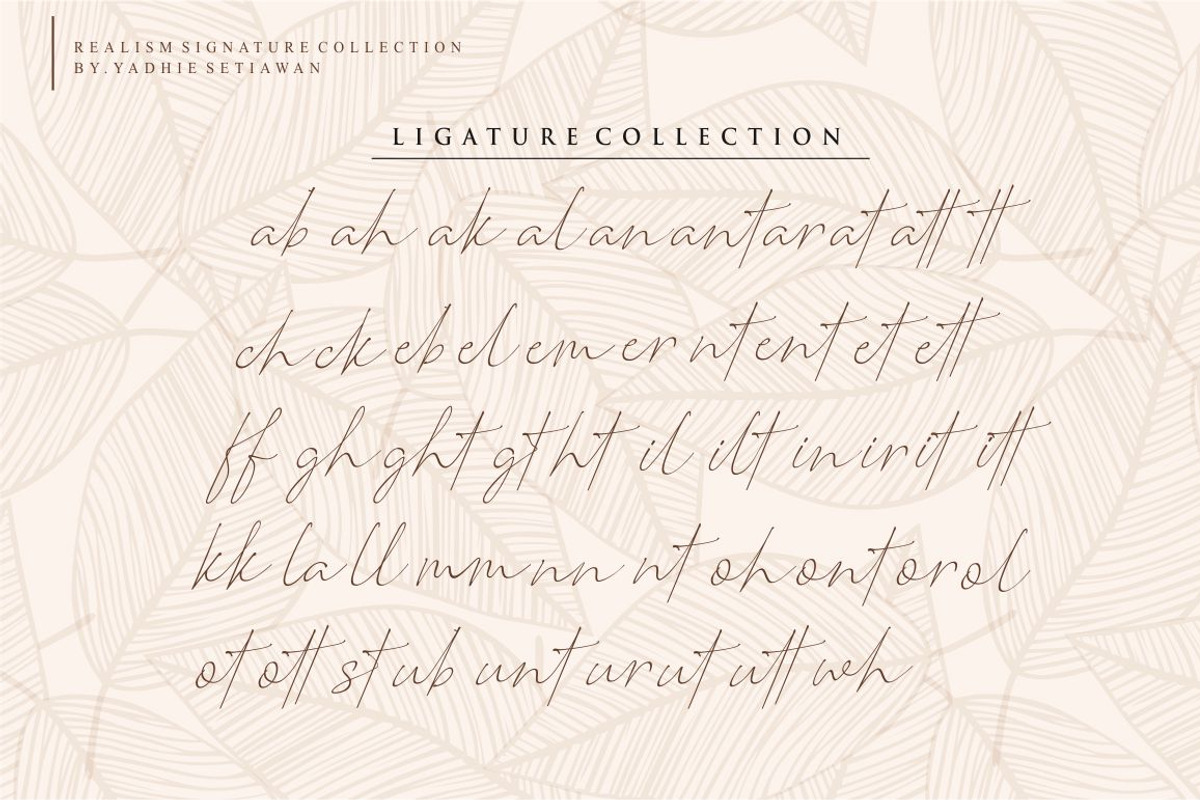 REALISM SIGNATURE COLLECTION
BY. YADHIE SETIAWAN
LIGATURE COLLECTION
ab ah ak al an ant ar at att tt
ch ck eb el em er nt ent et ett
ff gh ght gt ht il ilt in ir it itt
kk la ll mm nn nt oh ont or ol
ot ott st ub unt ur ut utt wh